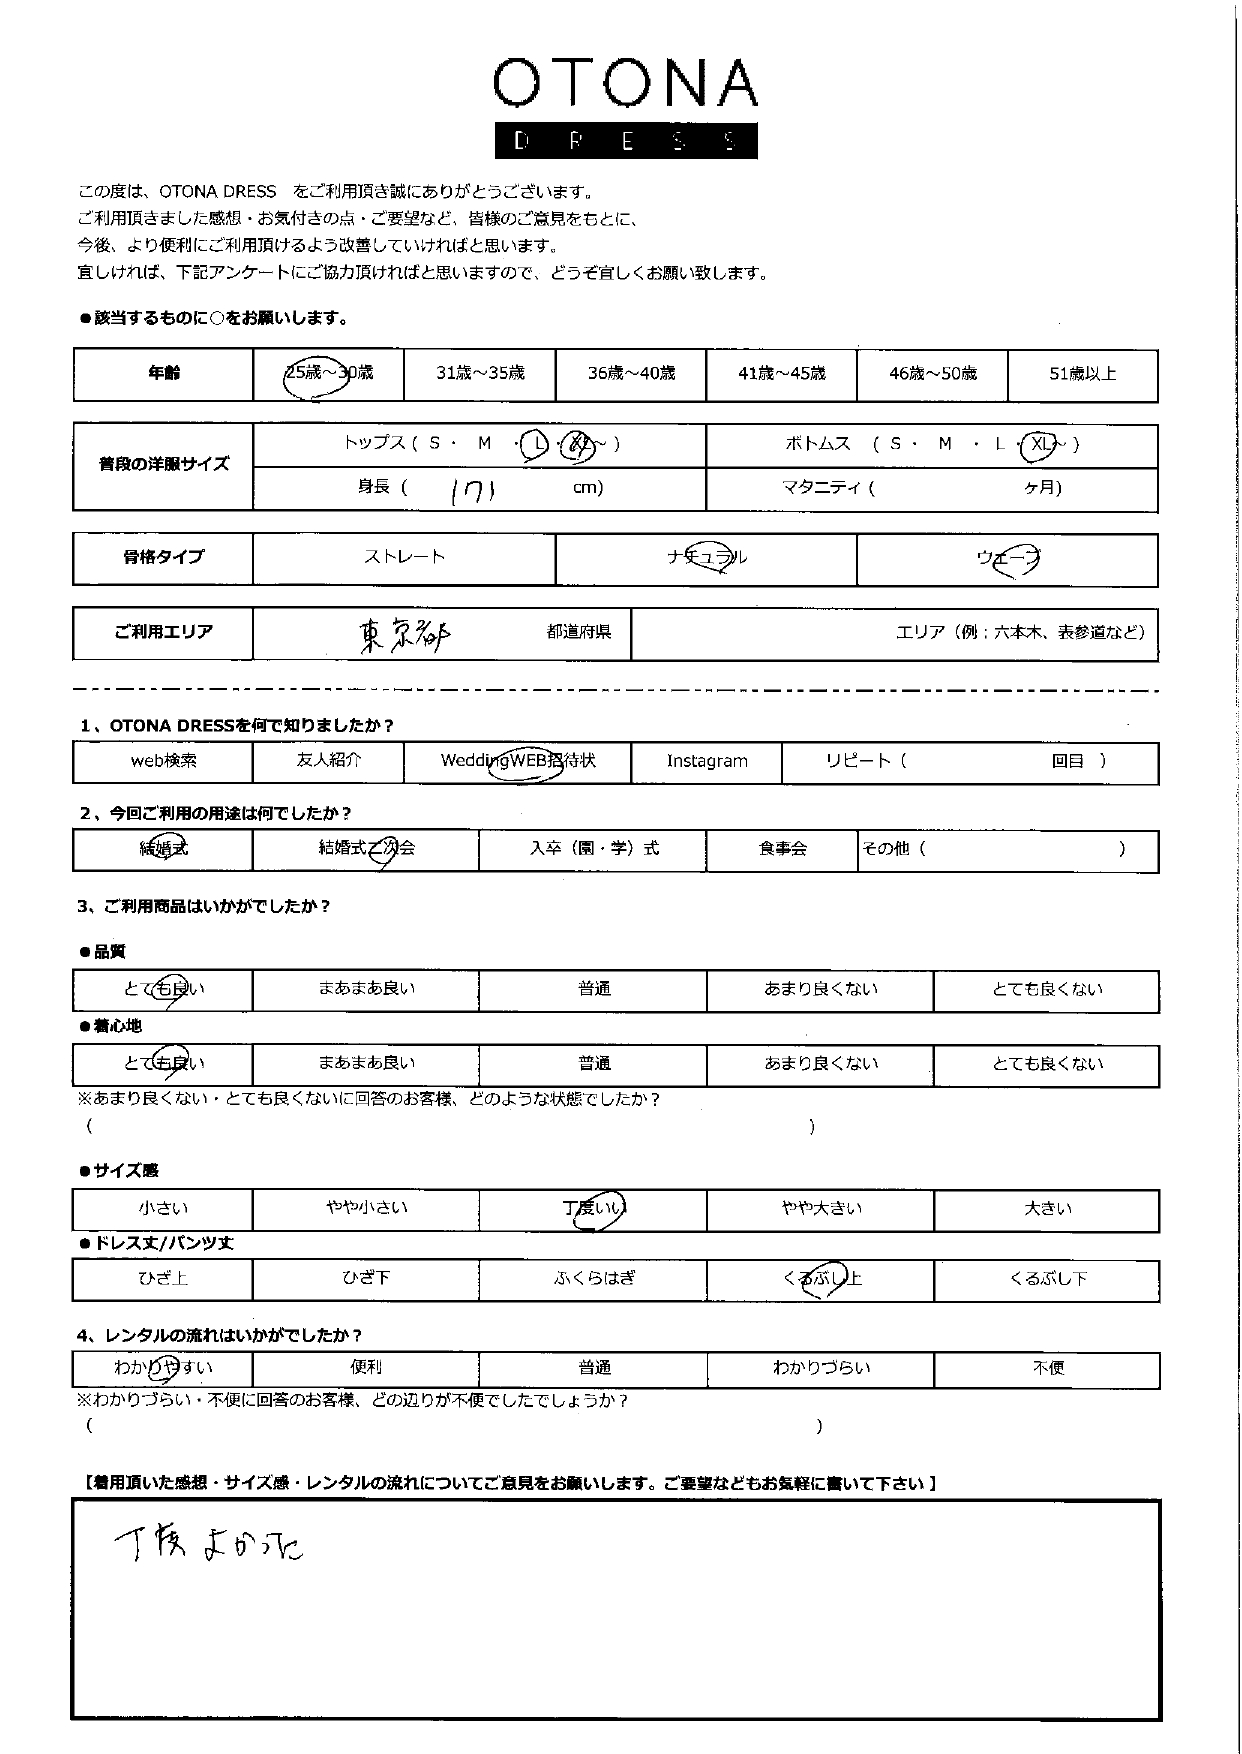 OTONA
DRESS
この度は、OTONA DRESS をご利用頂き誠にありがとうございます。
ご利用頂きました感想・お気付きの点・ご要望など、皆様のご意見をもとに、
今後、より便利にご利用頂けるよう改善していければと思います。
宜しければ、下記アンケートにご協力頂ければと思いますので、どうぞ宜しくお願い致します。
●該当するものに○をお願いします。
年齢 25歳～30歳 31歳～35歳 36歳～40歳 41歳～45歳 46歳～50歳 51歳以上
普段の洋服サイズ トップス ( S ・ M ・ L ・ XL～ ) ボトムス ( S ・ M ・ L ・ XL～ )
身長 ( 171 cm) マタニティ ( ヶ月)
骨格タイプ ストレート ナチュラル ウェーブ
ご利用エリア 東京都 都道府県 エリア（例：六本木、表参道など）
1、OTONA DRESSを何で知りましたか？
web検索 友人紹介 WeddingWEB招待状 Instagram リピート（ 回目 ）
2、今回ご利用の用途は何でしたか？
結婚式 結婚式二次会 入卒（園・学）式 食事会 その他（ ）
3、ご利用商品はいかがでしたか？
●品質
とても良い まあまあ良い 普通 あまり良くない とても良くない
●着心地
とても良い まあまあ良い 普通 あまり良くない とても良くない
※あまり良くない・とても良くないに回答のお客様、どのような状態でしたか？
( )
●サイズ感
小さい やや小さい 丁度いい やや大きい 大きい
●ドレス丈/パンツ丈
ひざ上 ひざ下 ふくらはぎ くるぶし上 くるぶし下
4、レンタルの流れはいかがでしたか？
わかりやすい 便利 普通 わかりづらい 不便
※わかりづらい・不便に回答のお客様、どの辺りが不便でしたでしょうか？
( )
【着用頂いた感想・サイズ感・レンタルの流れについてご意見をお願いします。ご要望などもお気軽に書いて下さい】
よかった